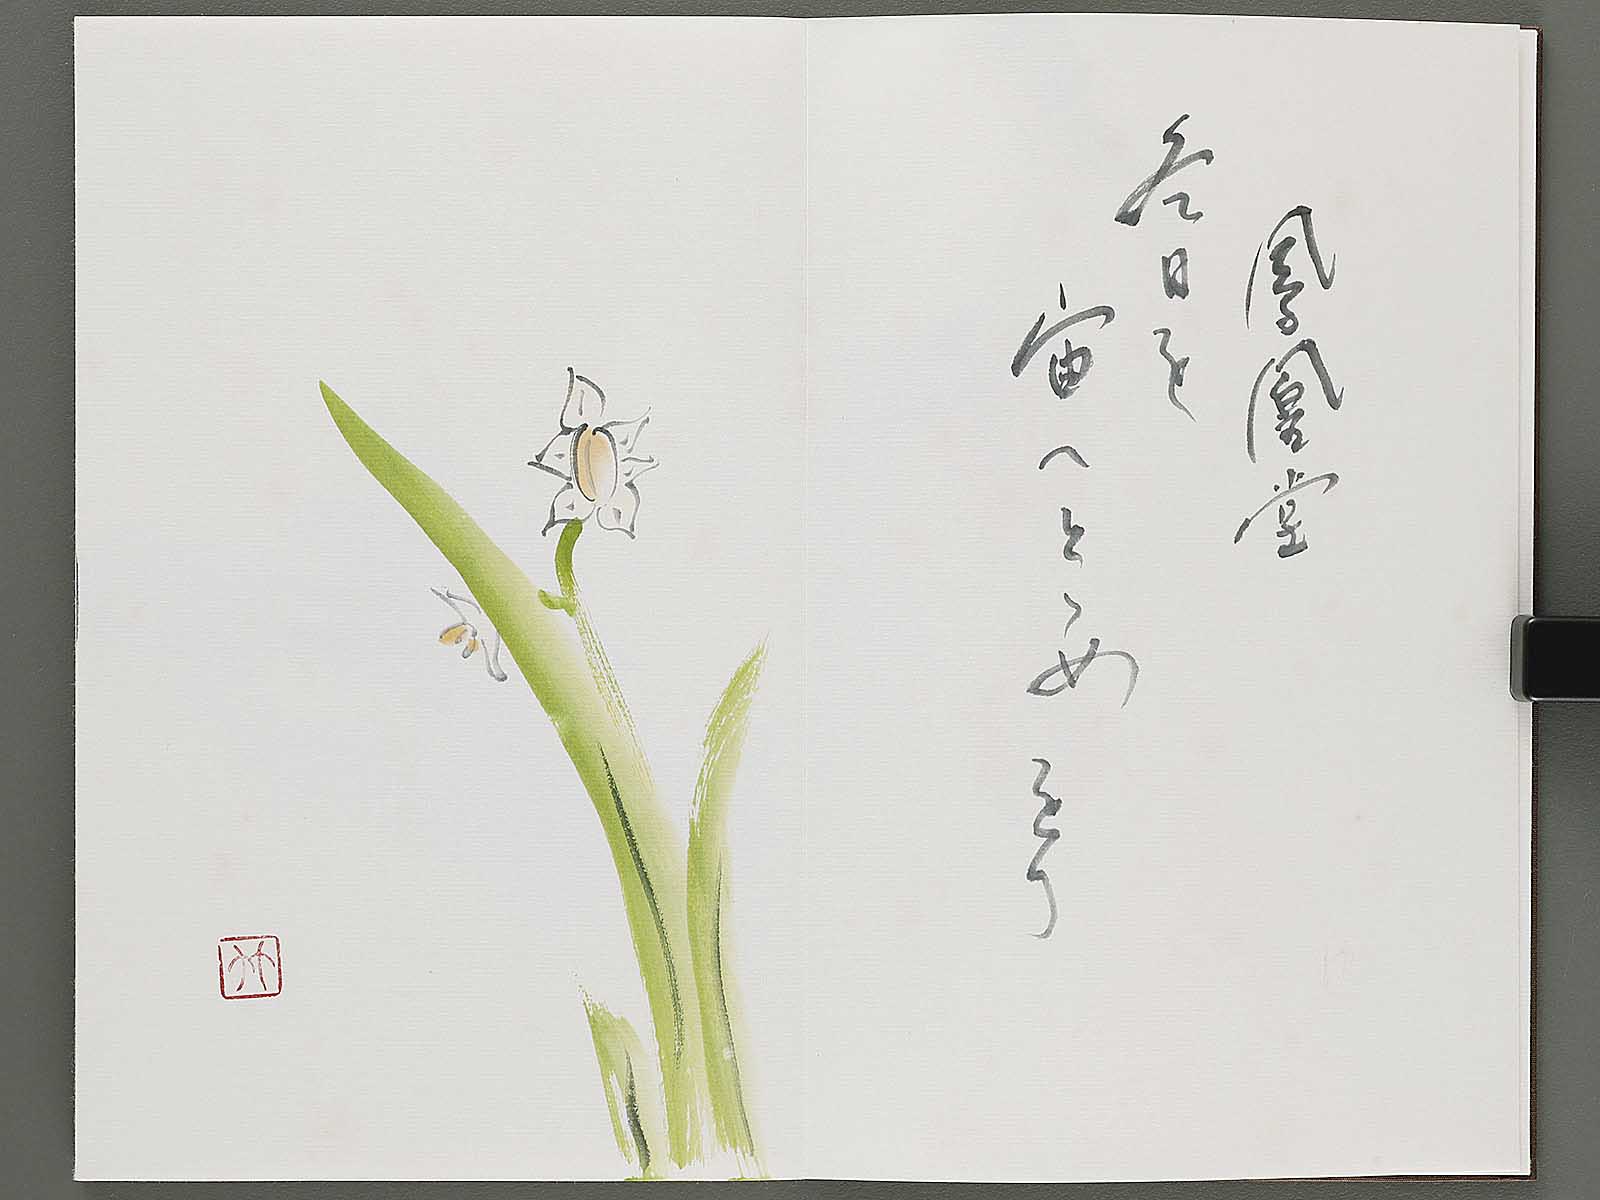 鳳凰堂
冬日を
宙へとゞめをり